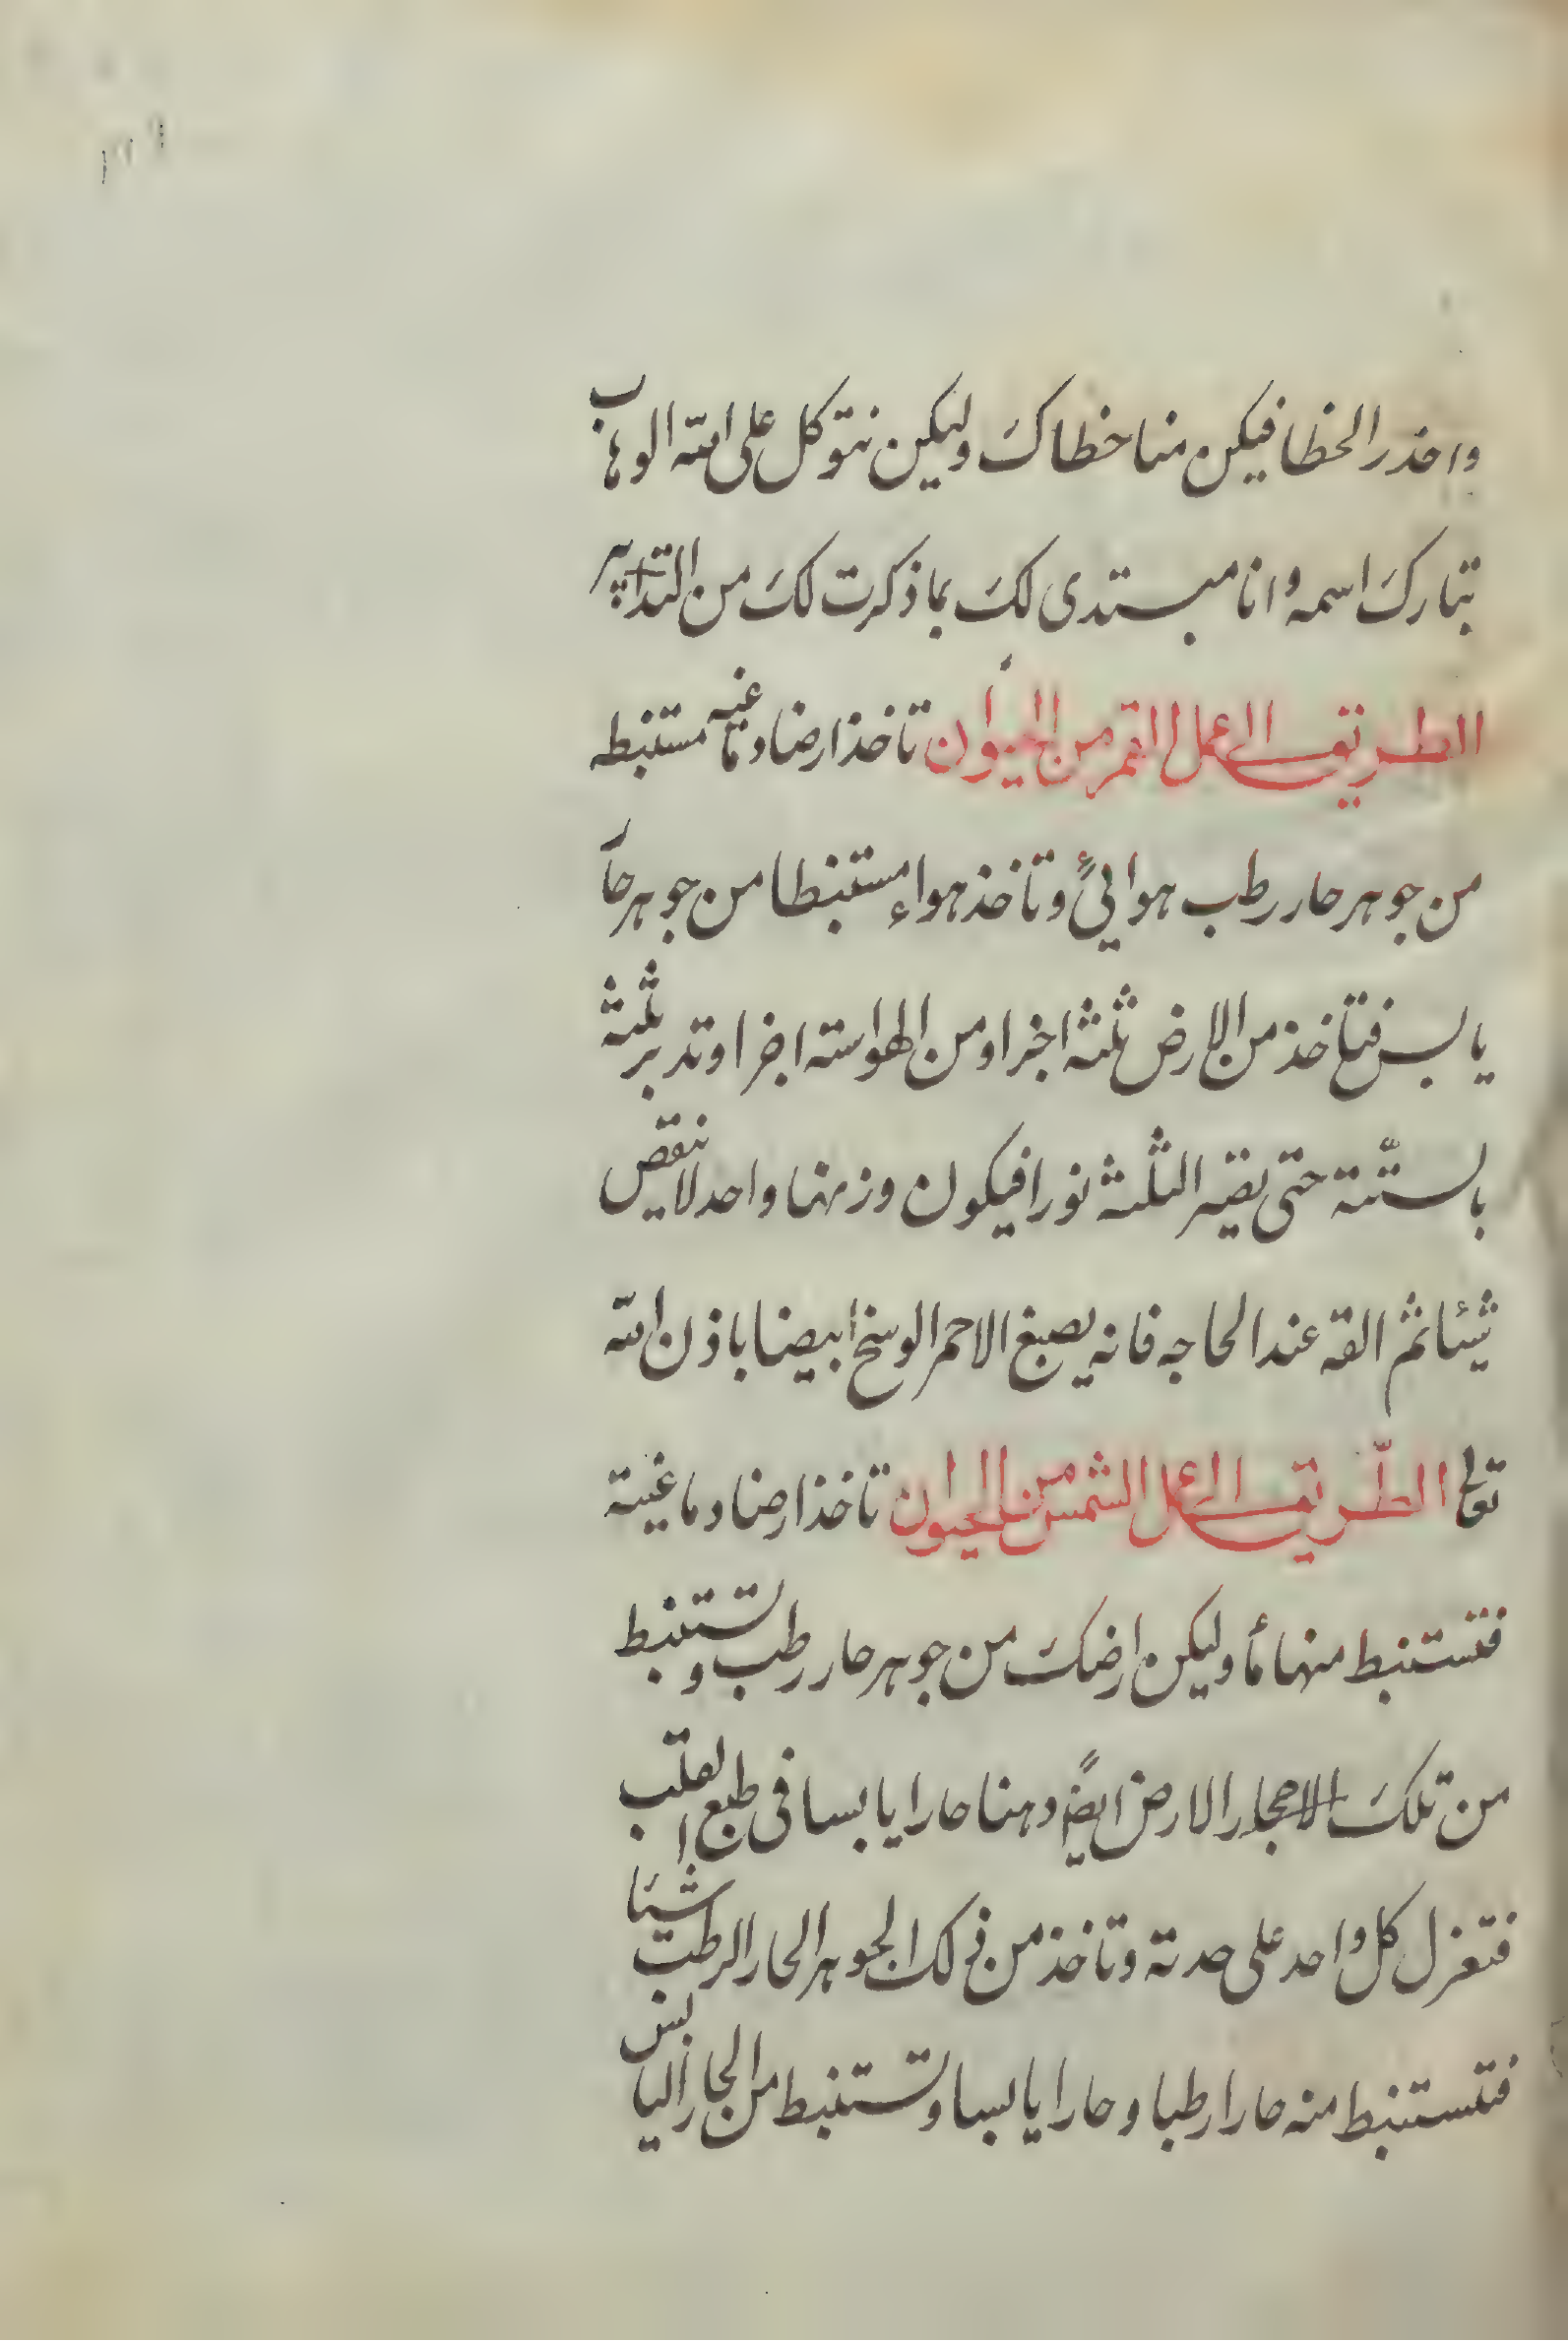 واحذر الخطا فيكن مناخطاك وليكن نتوكل على الله الوهاب
تبارك اسمه وانا مبتدى لك بما ذكرت لك من التدابير
الطريق الى عمل القمر من الحيوان تاخذ ارضا دماغيه مستنبطه
من جوهر حار رطب هوائي وتاخذ هواء مستنبطا من جوهر حار
يابس فتاخذ من الارض ثلثة اجزا ومن الهوا سته اجزا وتدبر ثلثة
بالستّة حتى يصير الثلثة نورا فيكون وزنها واحد لا ينقص
شيئا ثم القه عند الحاجه فانه يصبغ الاحمر الوسخ ابيضا باذن الله
تعالى الطّريق الى عمل الشمس من الحيوان تاخذ ارضا دماغية
فتستنبط منها مأ وليكن ارضك من جوهر حار رطب وتستنبط
من تلك الاحجار الارض ايضاً دهنا حارا يابسا فى طبع القلب
فتعزل كل واحد على حدته وتاخذ من ذلك الجوهر الحار الرطب شيئا
فتستنبط منه حارا رطبا وحارا يابسا وتستنبط من الحار اليابس